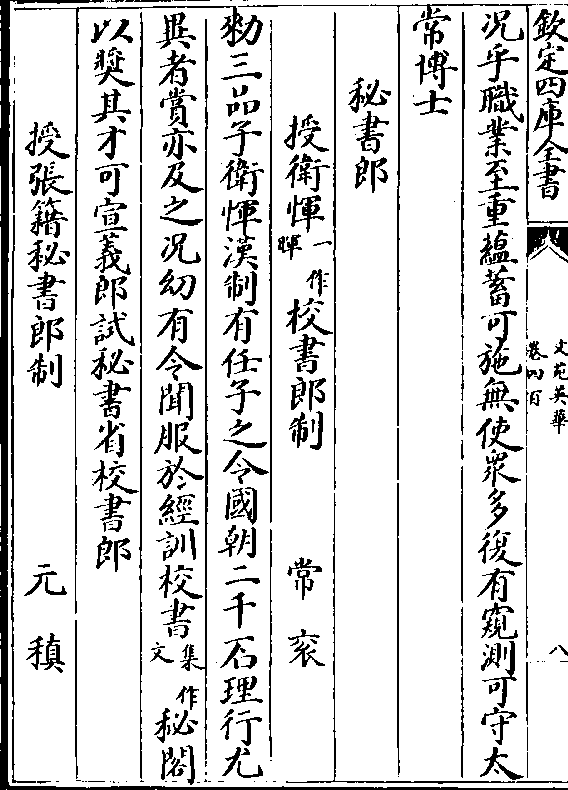 欽定四庫全書
文苑英華
卷四百
八
況乎職業至重蘊蓄可施無使衆多復有窺測可守太
常博士
秘書郎
授衛惲一作暉校書郎制 常衮
勑三品子衛惲漢制有任子之令國朝二千石理行尤
異者賞亦及之况幼有令聞服於經訓校書集文作秘閣
以奬其才可宣義郎試秘書省校書郎
授張籍秘書郎制 元稹